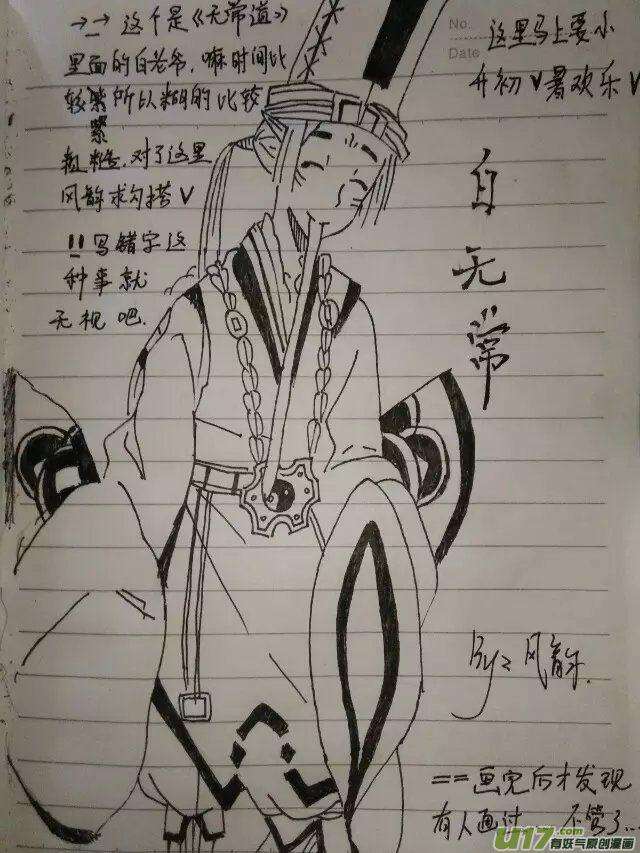 →_→ 这个是《无常道》
里面的白老爷，嘛时间比
较紧所以糊的比较
紧
粗糙，对了这里
风龄求勾搭∨
!! 写错字这
种事就
无视吧.
No.
Date
这里马上要小
升初∨暑欢乐∨
白
无
常
By:风龄.
== 画完后才发现
有人画过 不管了…
U17.com
有妖气原创漫画